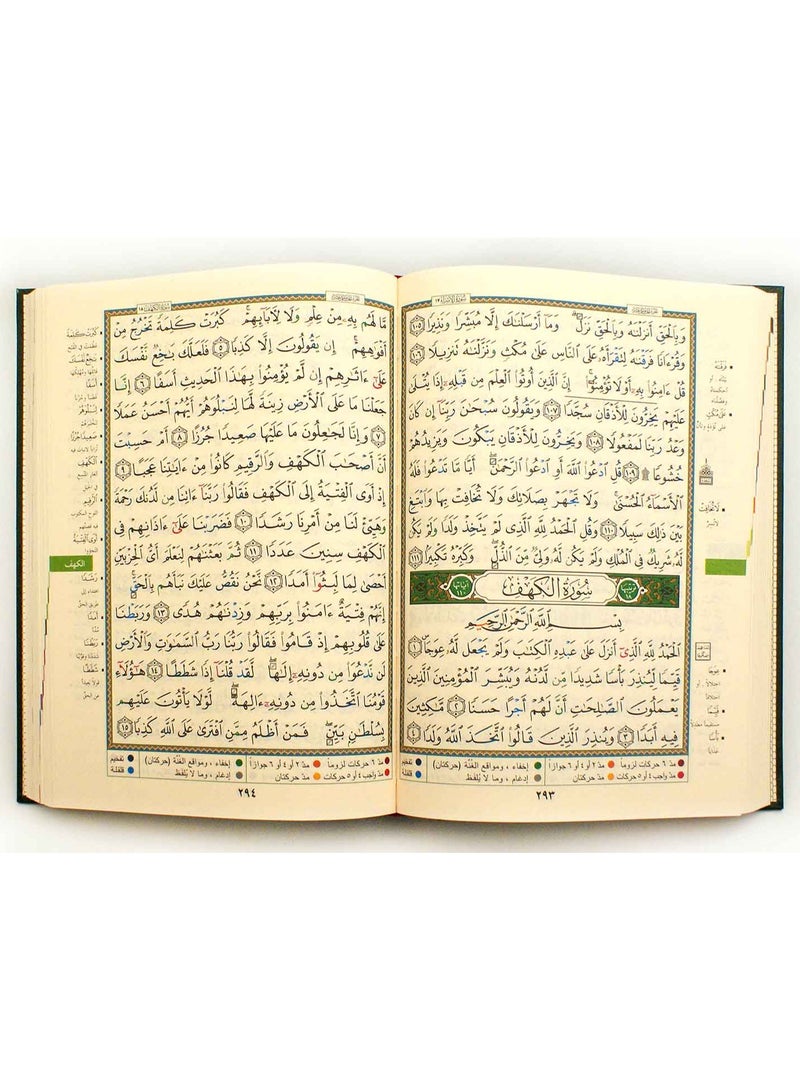 سُورَةُ الإِسْرَاء ١٧
وَبِالْحَقِّ أَنزَلْنَاهُ وَبِالْحَقِّ نَزَلَ ۗ وَمَا أَرْسَلْنَاكَ إِلَّا مُبَشِّرًا وَنَذِيرًا ١٠٥
وَقُرْءَانًا فَرَقْنَاهُ لِتَقْرَأَهُۥ عَلَى النَّاسِ عَلَىٰ مُكْثٍ وَنَزَّلْنَاهُ تَنزِيلًا ١٠٦
قُلْ ءَامِنُوا بِهِۦٓ أَوْ لَا تُؤْمِنُوٓا ۚ إِنَّ الَّذِينَ أُوتُوا الْعِلْمَ مِن قَبْلِهِۦٓ إِذَا يُتْلَىٰ
عَلَيْهِمْ يَخِرُّونَ لِلْأَذْقَانِ سُجَّدًا ١٠٧ وَيَقُولُونَ سُبْحَٰنَ رَبِّنَآ إِن كَانَ
وَعْدُ رَبِّنَا لَمَفْعُولًا ١٠٨ وَيَخِرُّونَ لِلْأَذْقَانِ يَبْكُونَ وَيَزِيدُهُمْ
خُشُوعًا ۩ ١٠٩ قُلِ ادْعُوا اللَّهَ أَوِ ادْعُوا الرَّحْمَٰنَ ۖ أَيًّا مَّا تَدْعُوا فَلَهُ
الْأَسْمَآءُ الْحُسْنَىٰ ۚ وَلَا تَجْهَرْ بِصَلَاتِكَ وَلَا تُخَافِتْ بِهَا وَابْتَغِ
بَيْنَ ذَٰلِكَ سَبِيلًا ١١٠ وَقُلِ الْحَمْدُ لِلَّهِ الَّذِى لَمْ يَتَّخِذْ وَلَدًا وَلَمْ يَكُن
لَّهُۥ شَرِيكٌ فِى الْمُلْكِ وَلَمْ يَكُن لَّهُۥ وَلِىٌّ مِّنَ الذُّلِّ ۖ وَكَبِّرْهُ تَكْبِيرًا ١١١
سُورَةُ الْكَهْفِ
ءاياتها ١١٠
ترتيبها ١٨
بِسْمِ اللَّهِ الرَّحْمَٰنِ الرَّحِيمِ
الْحَمْدُ لِلَّهِ الَّذِىٓ أَنزَلَ عَلَىٰ عَبْدِهِ الْكِتَٰبَ وَلَمْ يَجْعَل لَّهُۥ عِوَجَا ۜ ١
قَيِّمًا لِّيُنذِرَ بَأْسًا شَدِيدًا مِّن لَّدُنْهُ وَيُبَشِّرَ الْمُؤْمِنِينَ الَّذِينَ
يَعْمَلُونَ الصَّٰلِحَٰتِ أَنَّ لَهُمْ أَجْرًا حَسَنًا ٢ مَّٰكِثِينَ
فِيهِ أَبَدًا ٣ وَيُنذِرَ الَّذِينَ قَالُوا اتَّخَذَ اللَّهُ وَلَدًا ٤
مدّ ٦ حركات لزوماً
مدّ ٢ أو ٤ أو ٦ جوازاً
إخفاء ، ومواقع الغُنّة (حركتان)
تفخيم
مدّ واجب ٤ أو ٥ حركات
مدّ حركتان
إدغام ، وما لا يُلفظ
قلقلة
٢٩٣
سُورَةُ الكَهْف ١٨
مَّا لَهُم بِهِۦ مِنْ عِلْمٍ وَلَا لِءَابَآئِهِمْ ۚ كَبُرَتْ كَلِمَةً تَخْرُجُ مِنْ
أَفْوَٰهِهِمْ ۚ إِن يَقُولُونَ إِلَّا كَذِبًا ٥ فَلَعَلَّكَ بَٰخِعٌ نَّفْسَكَ
عَلَىٰٓ ءَاثَٰرِهِمْ إِن لَّمْ يُؤْمِنُوا بِهَٰذَا الْحَدِيثِ أَسَفًا ٦ إِنَّا
جَعَلْنَا مَا عَلَى الْأَرْضِ زِينَةً لَّهَا لِنَبْلُوَهُمْ أَيُّهُمْ أَحْسَنُ عَمَلًا
٧ وَإِنَّا لَجَٰعِلُونَ مَا عَلَيْهَا صَعِيدًا جُرُزًا ٨ أَمْ حَسِبْتَ
أَنَّ أَصْحَٰبَ الْكَهْفِ وَالرَّقِيمِ كَانُوا مِنْ ءَايَٰتِنَا عَجَبًا ٩
إِذْ أَوَى الْفِتْيَةُ إِلَى الْكَهْفِ فَقَالُوا رَبَّنَآ ءَاتِنَا مِن لَّدُنكَ رَحْمَةً
وَهَيِّئْ لَنَا مِنْ أَمْرِنَا رَشَدًا ١٠ فَضَرَبْنَا عَلَىٰٓ ءَاذَانِهِمْ فِى
الْكَهْفِ سِنِينَ عَدَدًا ١١ ثُمَّ بَعَثْنَٰهُمْ لِنَعْلَمَ أَىُّ الْحِزْبَيْنِ
أَحْصَىٰ لِمَا لَبِثُوٓا أَمَدًا ١٢ نَّحْنُ نَقُصُّ عَلَيْكَ نَبَأَهُم بِالْحَقِّ ۚ
إِنَّهُمْ فِتْيَةٌ ءَامَنُوا بِرَبِّهِمْ وَزِدْنَٰهُمْ هُدًى ١٣ وَرَبَطْنَا
عَلَىٰ قُلُوبِهِمْ إِذْ قَامُوا فَقَالُوا رَبُّنَا رَبُّ السَّمَٰوَٰتِ وَالْأَرْضِ
لَن نَّدْعُوَا مِن دُونِهِۦٓ إِلَٰهًا ۖ لَّقَدْ قُلْنَآ إِذًا شَطَطًا ١٤ هَٰٓؤُلَآءِ
قَوْمُنَا اتَّخَذُوا مِن دُونِهِۦٓ ءَالِهَةً ۖ لَّوْلَا يَأْتُونَ عَلَيْهِم
بِسُلْطَٰنٍۭ بَيِّنٍ ۖ فَمَنْ أَظْلَمُ مِمَّنِ افْتَرَىٰ عَلَى اللَّهِ كَذِبًا ١٥
مدّ ٦ حركات لزوماً
مدّ ٢ أو ٤ أو ٦ جوازاً
إخفاء ، ومواقع الغُنّة (حركتان)
تفخيم
مدّ واجب ٤ أو ٥ حركات
مدّ حركتان
إدغام ، وما لا يُلفظ
قلقلة
٢٩٤
الكهف